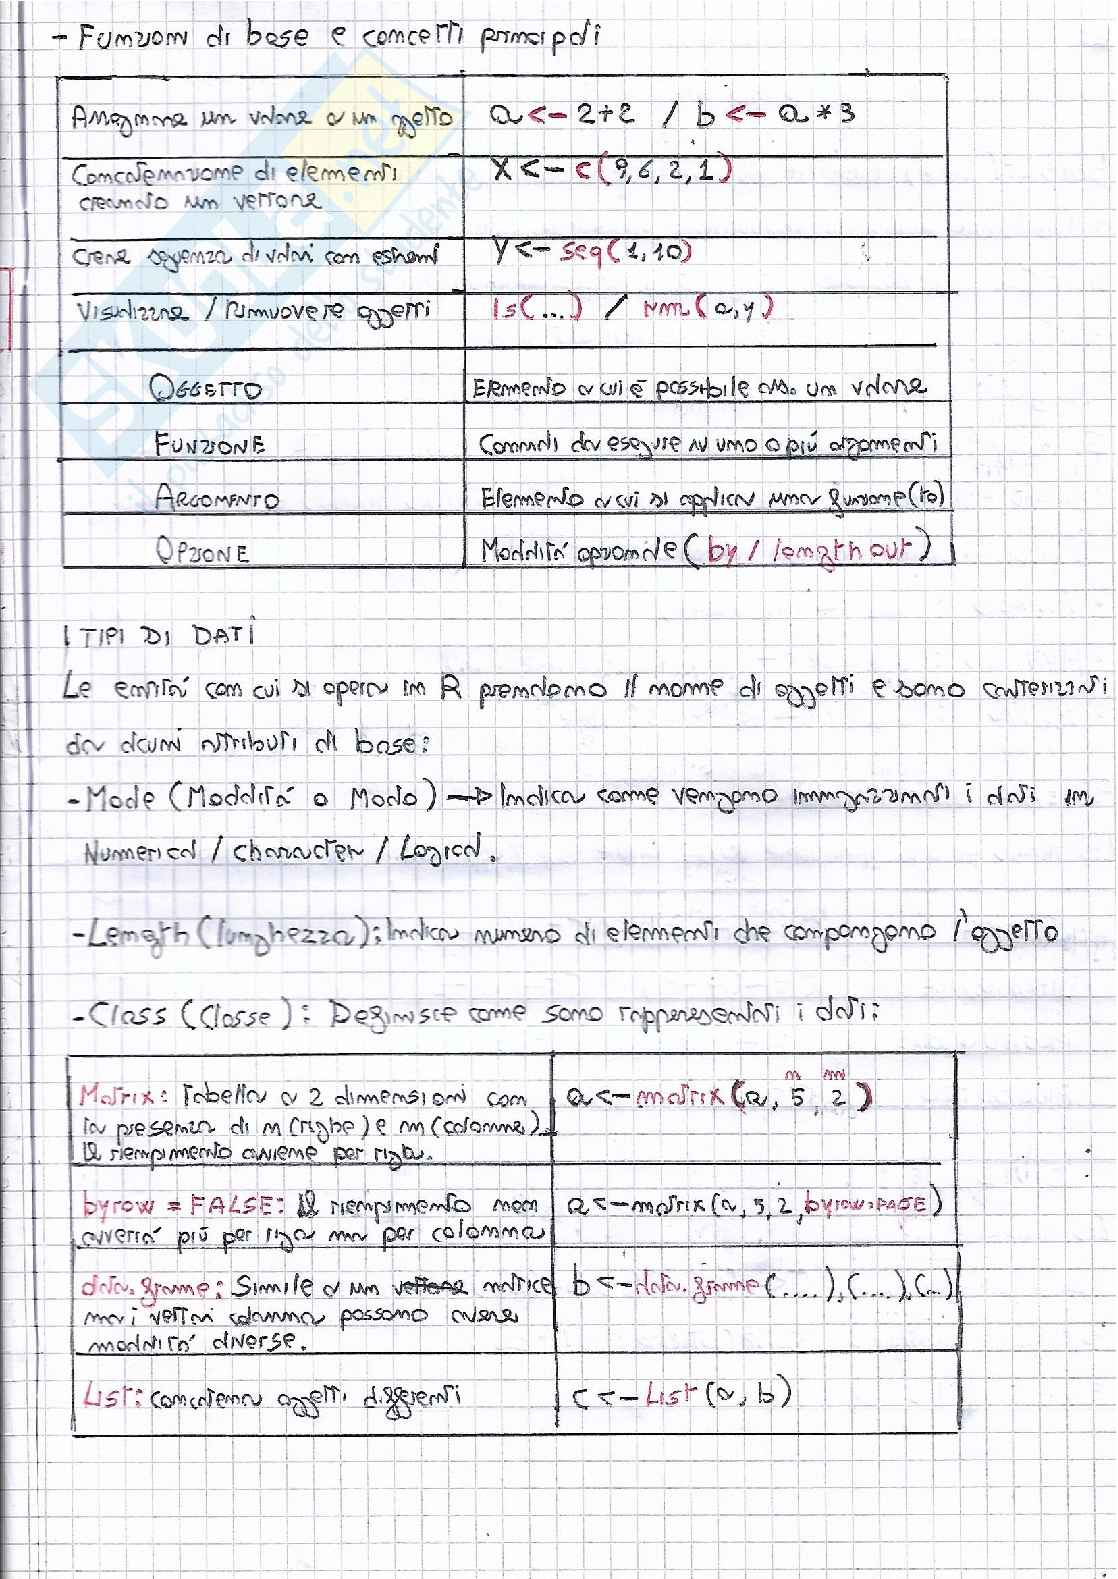 - Funzioni di base e concetti principali
Assegnare un valore a un oggetto a <- 2+2 / b <- a * 3
Concatenazione di elementi x <- c(9,6,2,1)
creando un vettore
Crea sequenza di valori con estremi y <- seq(1,10)
Visualizzare / Rimuovere oggetti ls(...) / rm(a,y)
OGGETTO Elemento a cui è possibile ass. un valore
FUNZIONE Comandi da eseguire su uno o più argomenti
ARGOMENTO Elemento a cui si applica una funzione(to)
OPZIONE Modalità opzionale (by / length out)
I TIPI DI DATI
Le entità con cui si opera in R prendono il nome di oggetti e sono caratterizzati
da alcuni attributi di base:
- Mode (Modalità o Modo) → Indica come vengono immagazzinati i dati in
Numerical / character / Logical.
- Length (lunghezza): Indica numero di elementi che compongono l'oggetto
- Class (Classe): Definisce come sono rappresentati i dati:
Matrix: Tabella a 2 dimensioni con a <- matrix(a, 5, 2)
la presenza di n (righe) e m (colonne).
Il riempimento avviene per riga.
byrow = FALSE: Il riempimento non a <- matrix(a, 5, 2, byrow=FALSE)
avverrà più per riga ma per colonna
data.frame: Simile a un vettore matrice b <- data.frame(....),(....),(...)
ma i vettori colonna possono avere
modalità diverse.
List: concatena oggetti differenti c <- List(a, b)